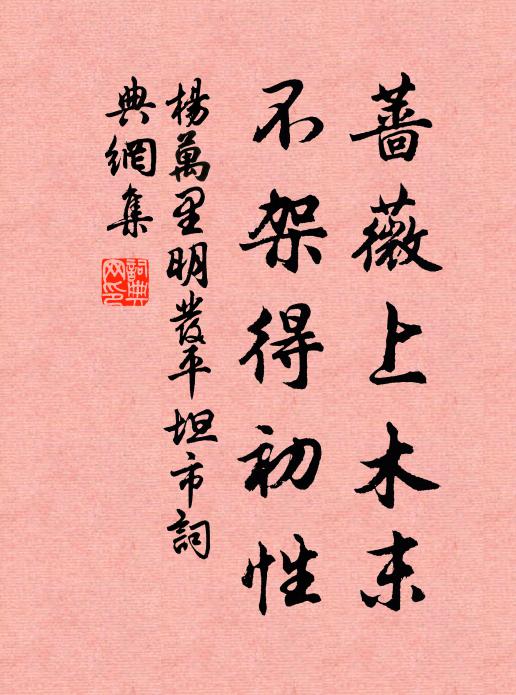 薔薇上木末
不架得初性
楊萬里明發平坦市詞
典網集
詞典網印